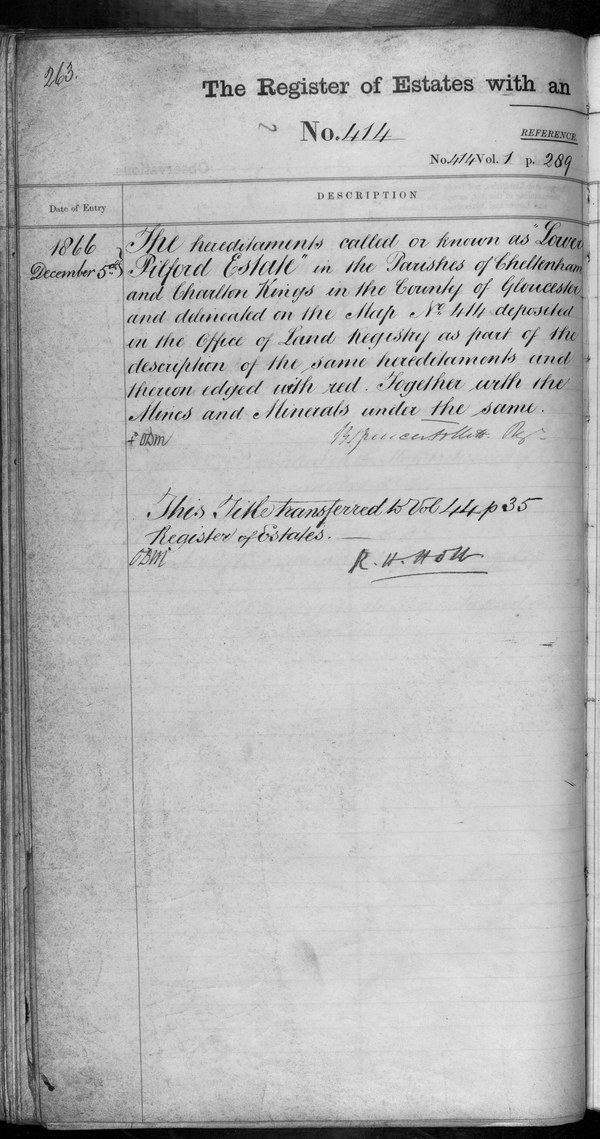 263.
The Register of Estates with an
No. 414
REFERENCE
No 414 Vol. 1 p. 289
Date of Entry
DESCRIPTION
1866
December 5th
The hereditaments called or known as "Lower
Pilford Estate" in the Parishes of Cheltenham
and Charlton Kings in the County of Gloucester
and delineated on the Map No. 414 deposited
in the Office of Land Registry as part of the
description of the same hereditaments and
thereon edged with red. Together with the
Mines and Minerals under the same.
Regr
This Title transferred to Vol 44 p 35
Register of Estates.
R. H. Holt